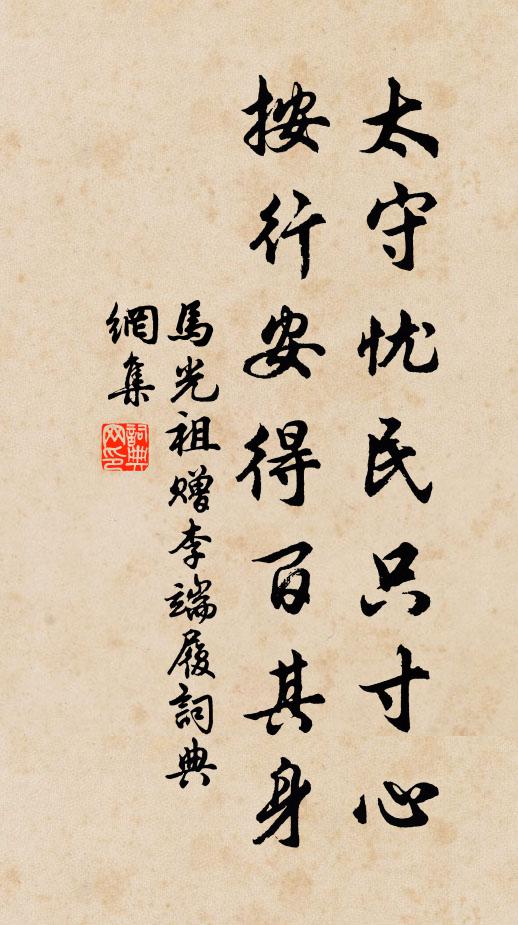 太守忧民只寸心
按行安得百其身
馬光祖赠李端履詞典
網集
詞典
网印